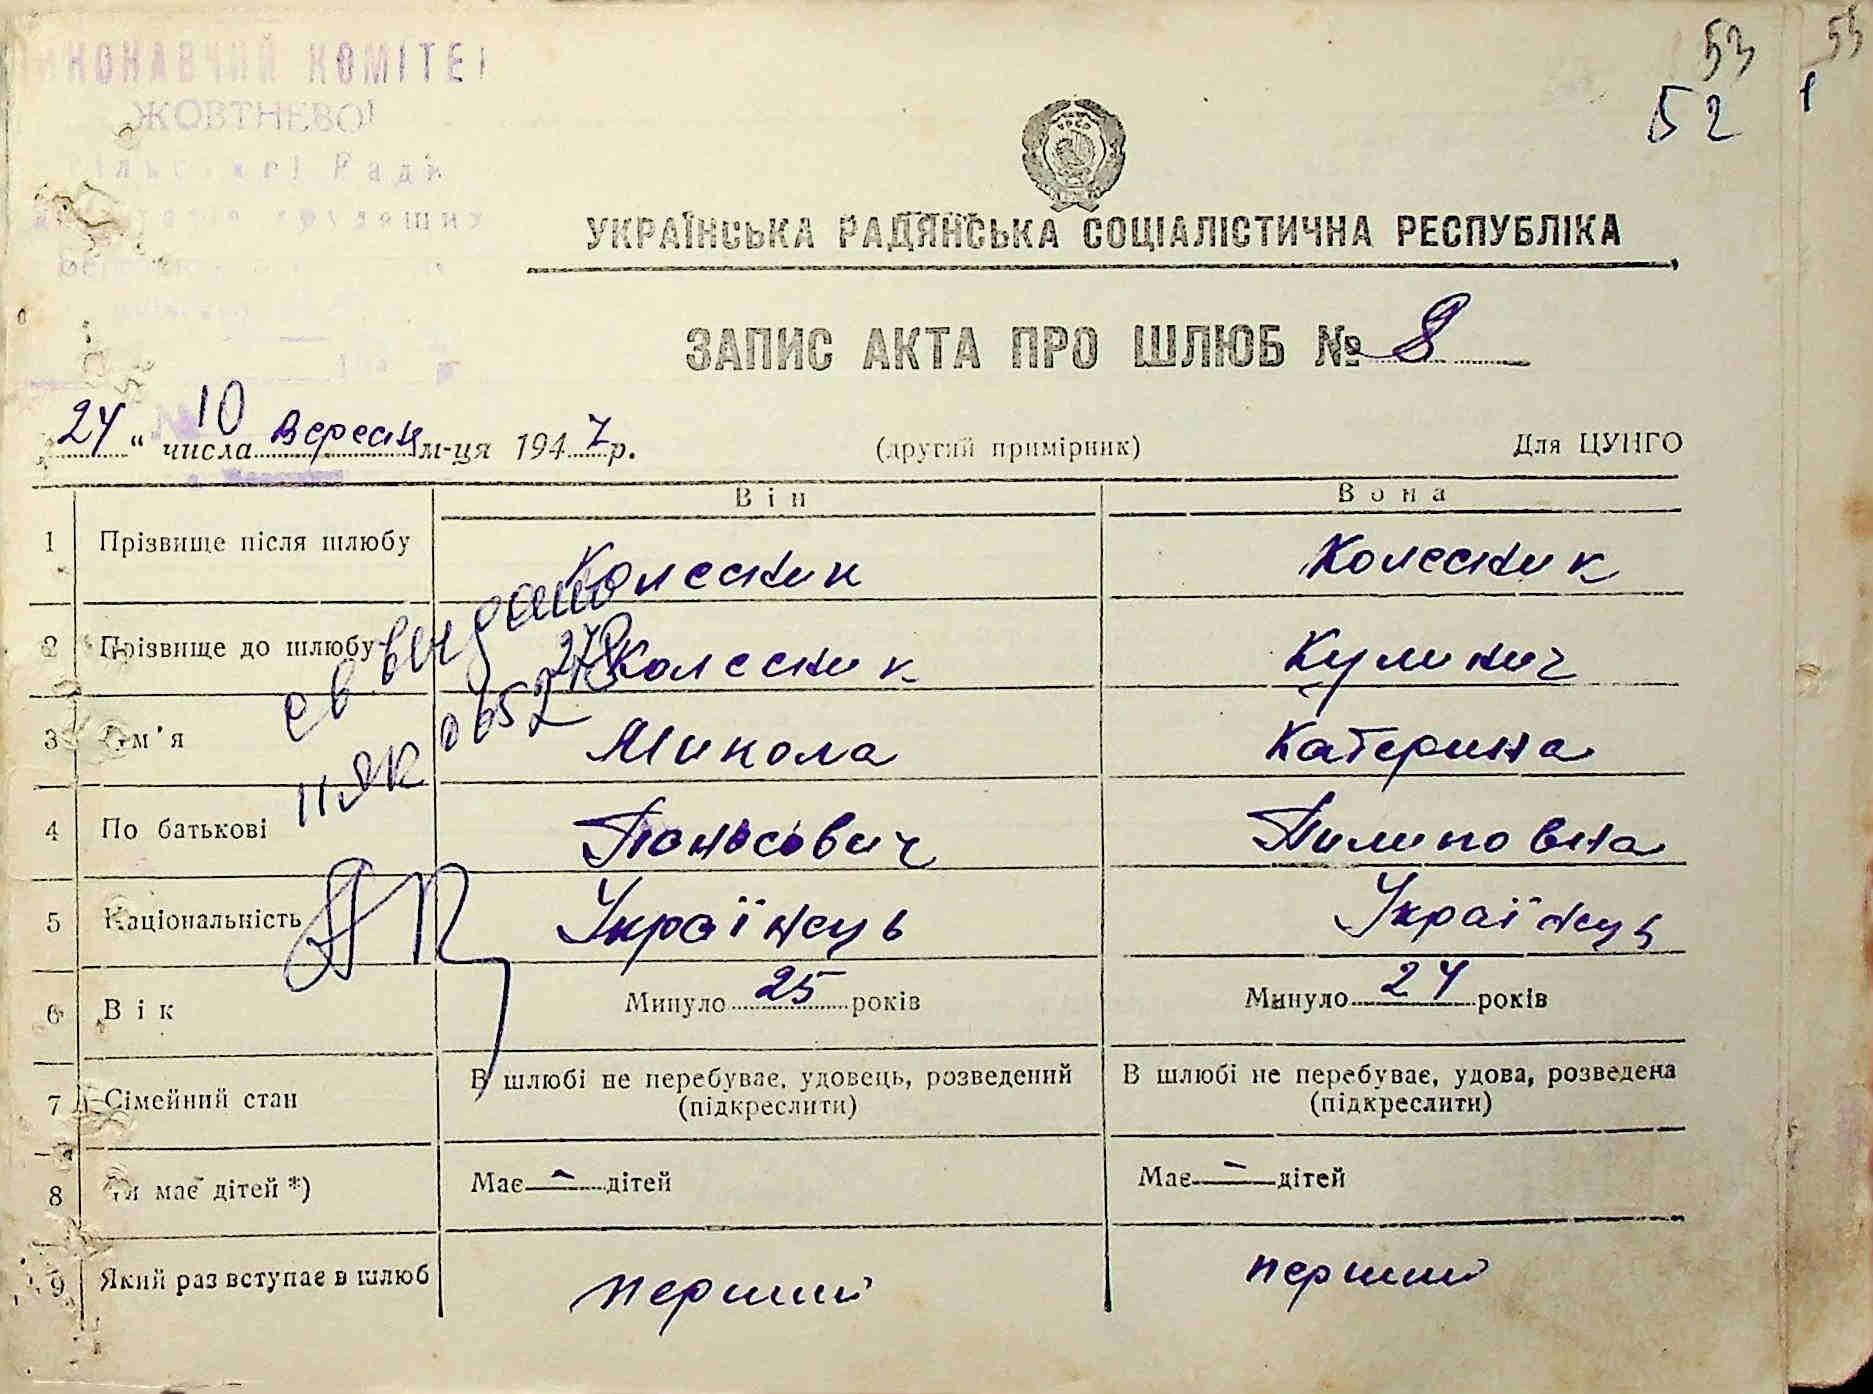 53
52
55
ВИКОНАВЧИЙ КОМІТЕТ
ЖОВТНЕВОЇ
Сільської Ради
УРСР
УКРАЇНСЬКА РАДЯНСЬКА СОЦІАЛІСТИЧНА РЕСПУБЛІКА
ЗАПИС АКТА ПРО ШЛЮБ № 8
24 " числа 10 вересня м-ця 1947 р. (другий примірник) Для ЦУНГО
Він Вона
1 Прізвище після шлюбу Колесник Колесник
2 Прізвище до шлюбу Колесник Кулинич
3 Ім'я Микола Катерина
4 По батькові Панасович Пилиповна
5 Національність Українець Українець
6 Вік Минуло 25 років Минуло 24 років
7 Сімейний стан В шлюбі не перебуває, удовець, розведений В шлюбі не перебуває, удова, розведена
(підкреслити) (підкреслити)
8 Чи має дітей *) Має — дітей Має — дітей
9 Який раз вступає в шлюб перший перший